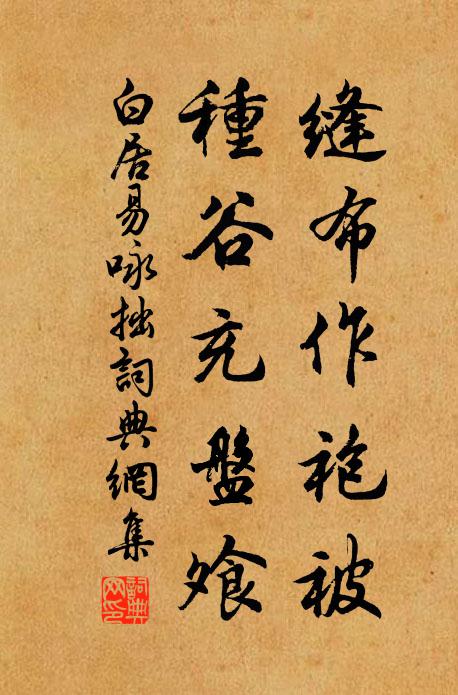 縫布作袍被
種谷充盤飧
白居易咏拙詞典網集
詞典網印